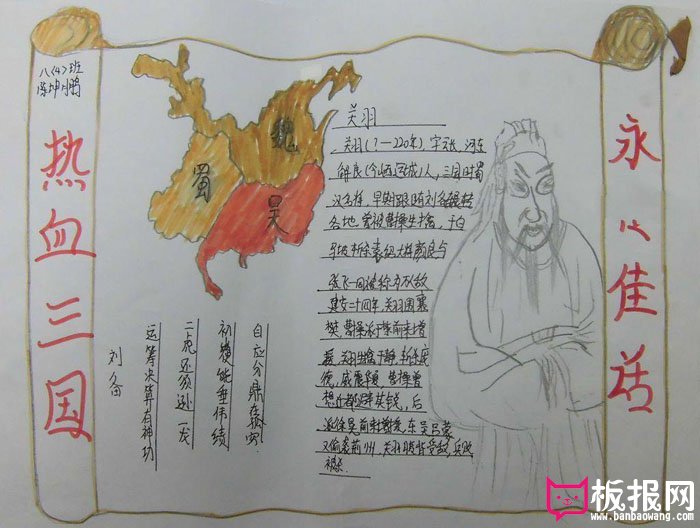 八(4)班
热血三国
蜀
魏
吴
关羽
关羽(?—220年),字云长,河东
解良(今山西运城)人,三国时蜀
汉名将,早期跟随刘备辗转
各地,曾被曹操生擒,于白
马坡斩杀袁绍大将颜良与
张飞一同被称为万人敌
建安二十四年,关羽围襄
樊,曹操派于禁前来增
援,关羽生擒于禁,斩杀庞
德,威震华夏,曹操曾
想迁都避其锐,后
派徐晃前来增援,东吴吕蒙
又偷袭荆州,关羽腹背受敌,兵败
被杀.
刘备
运筹决算有神功
二虎还须逊一龙
能垂伟绩
自应分鼎在
永佳话
板报网
www.banbaowang.com